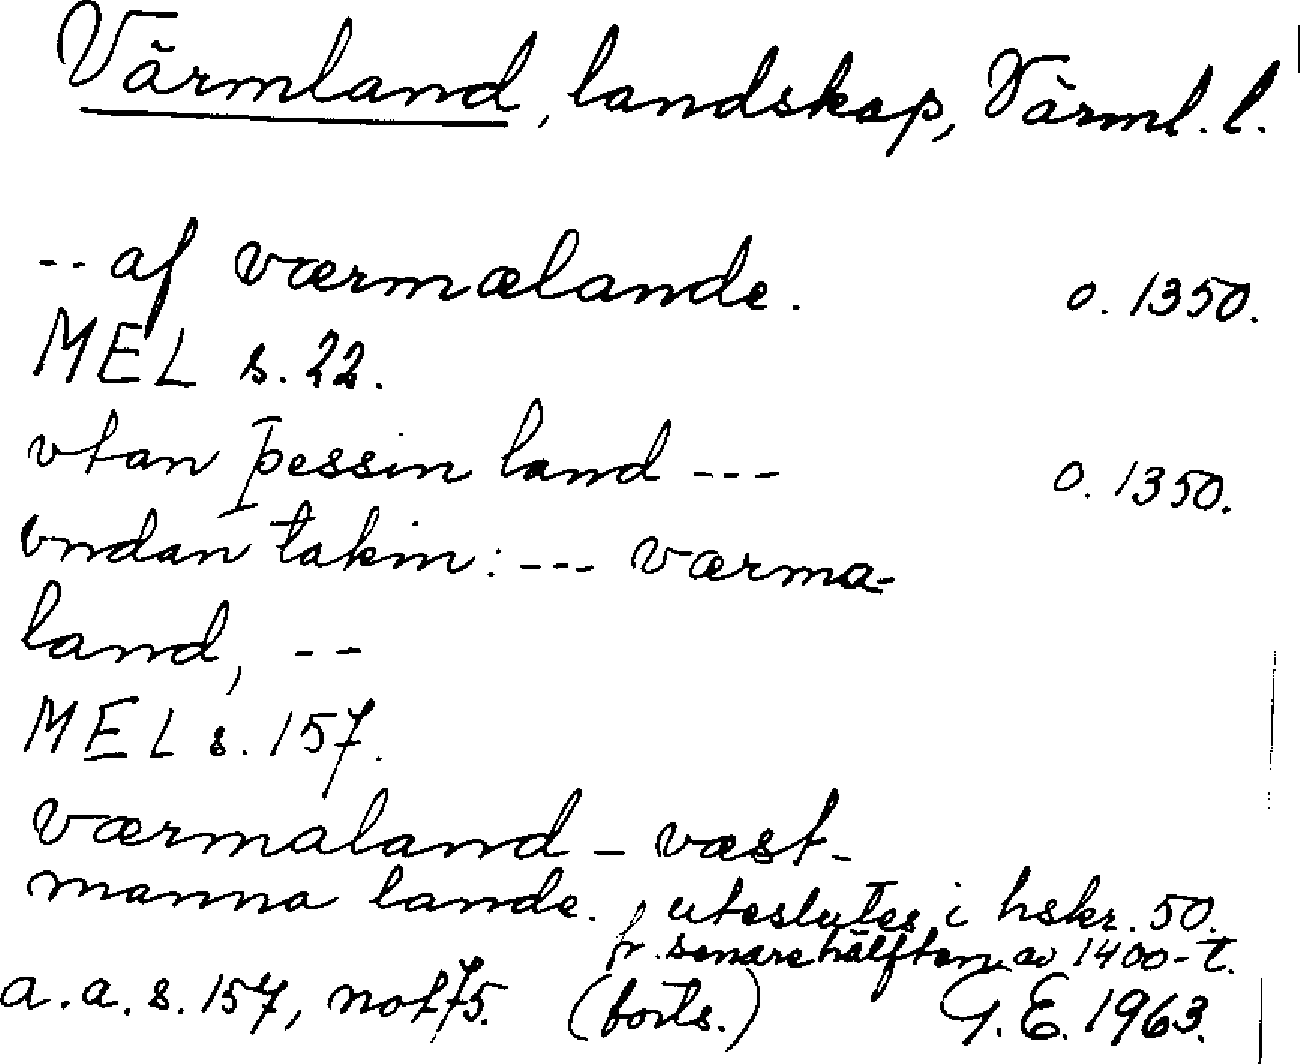 Värmland, landskap, Värml. l.
-- af værmælande. o. 1350.
MEL s. 22.
vtan þessin land --- o. 1350.
vndan takin: ---værma-
land, --
MEL s. 157.
værmaland - væst-
manna lande. uteslutes i hskr. 50.
fr. senare hälften av 1400-t.
a.a.s. 157, not 75. (forts.) G.E. 1963.